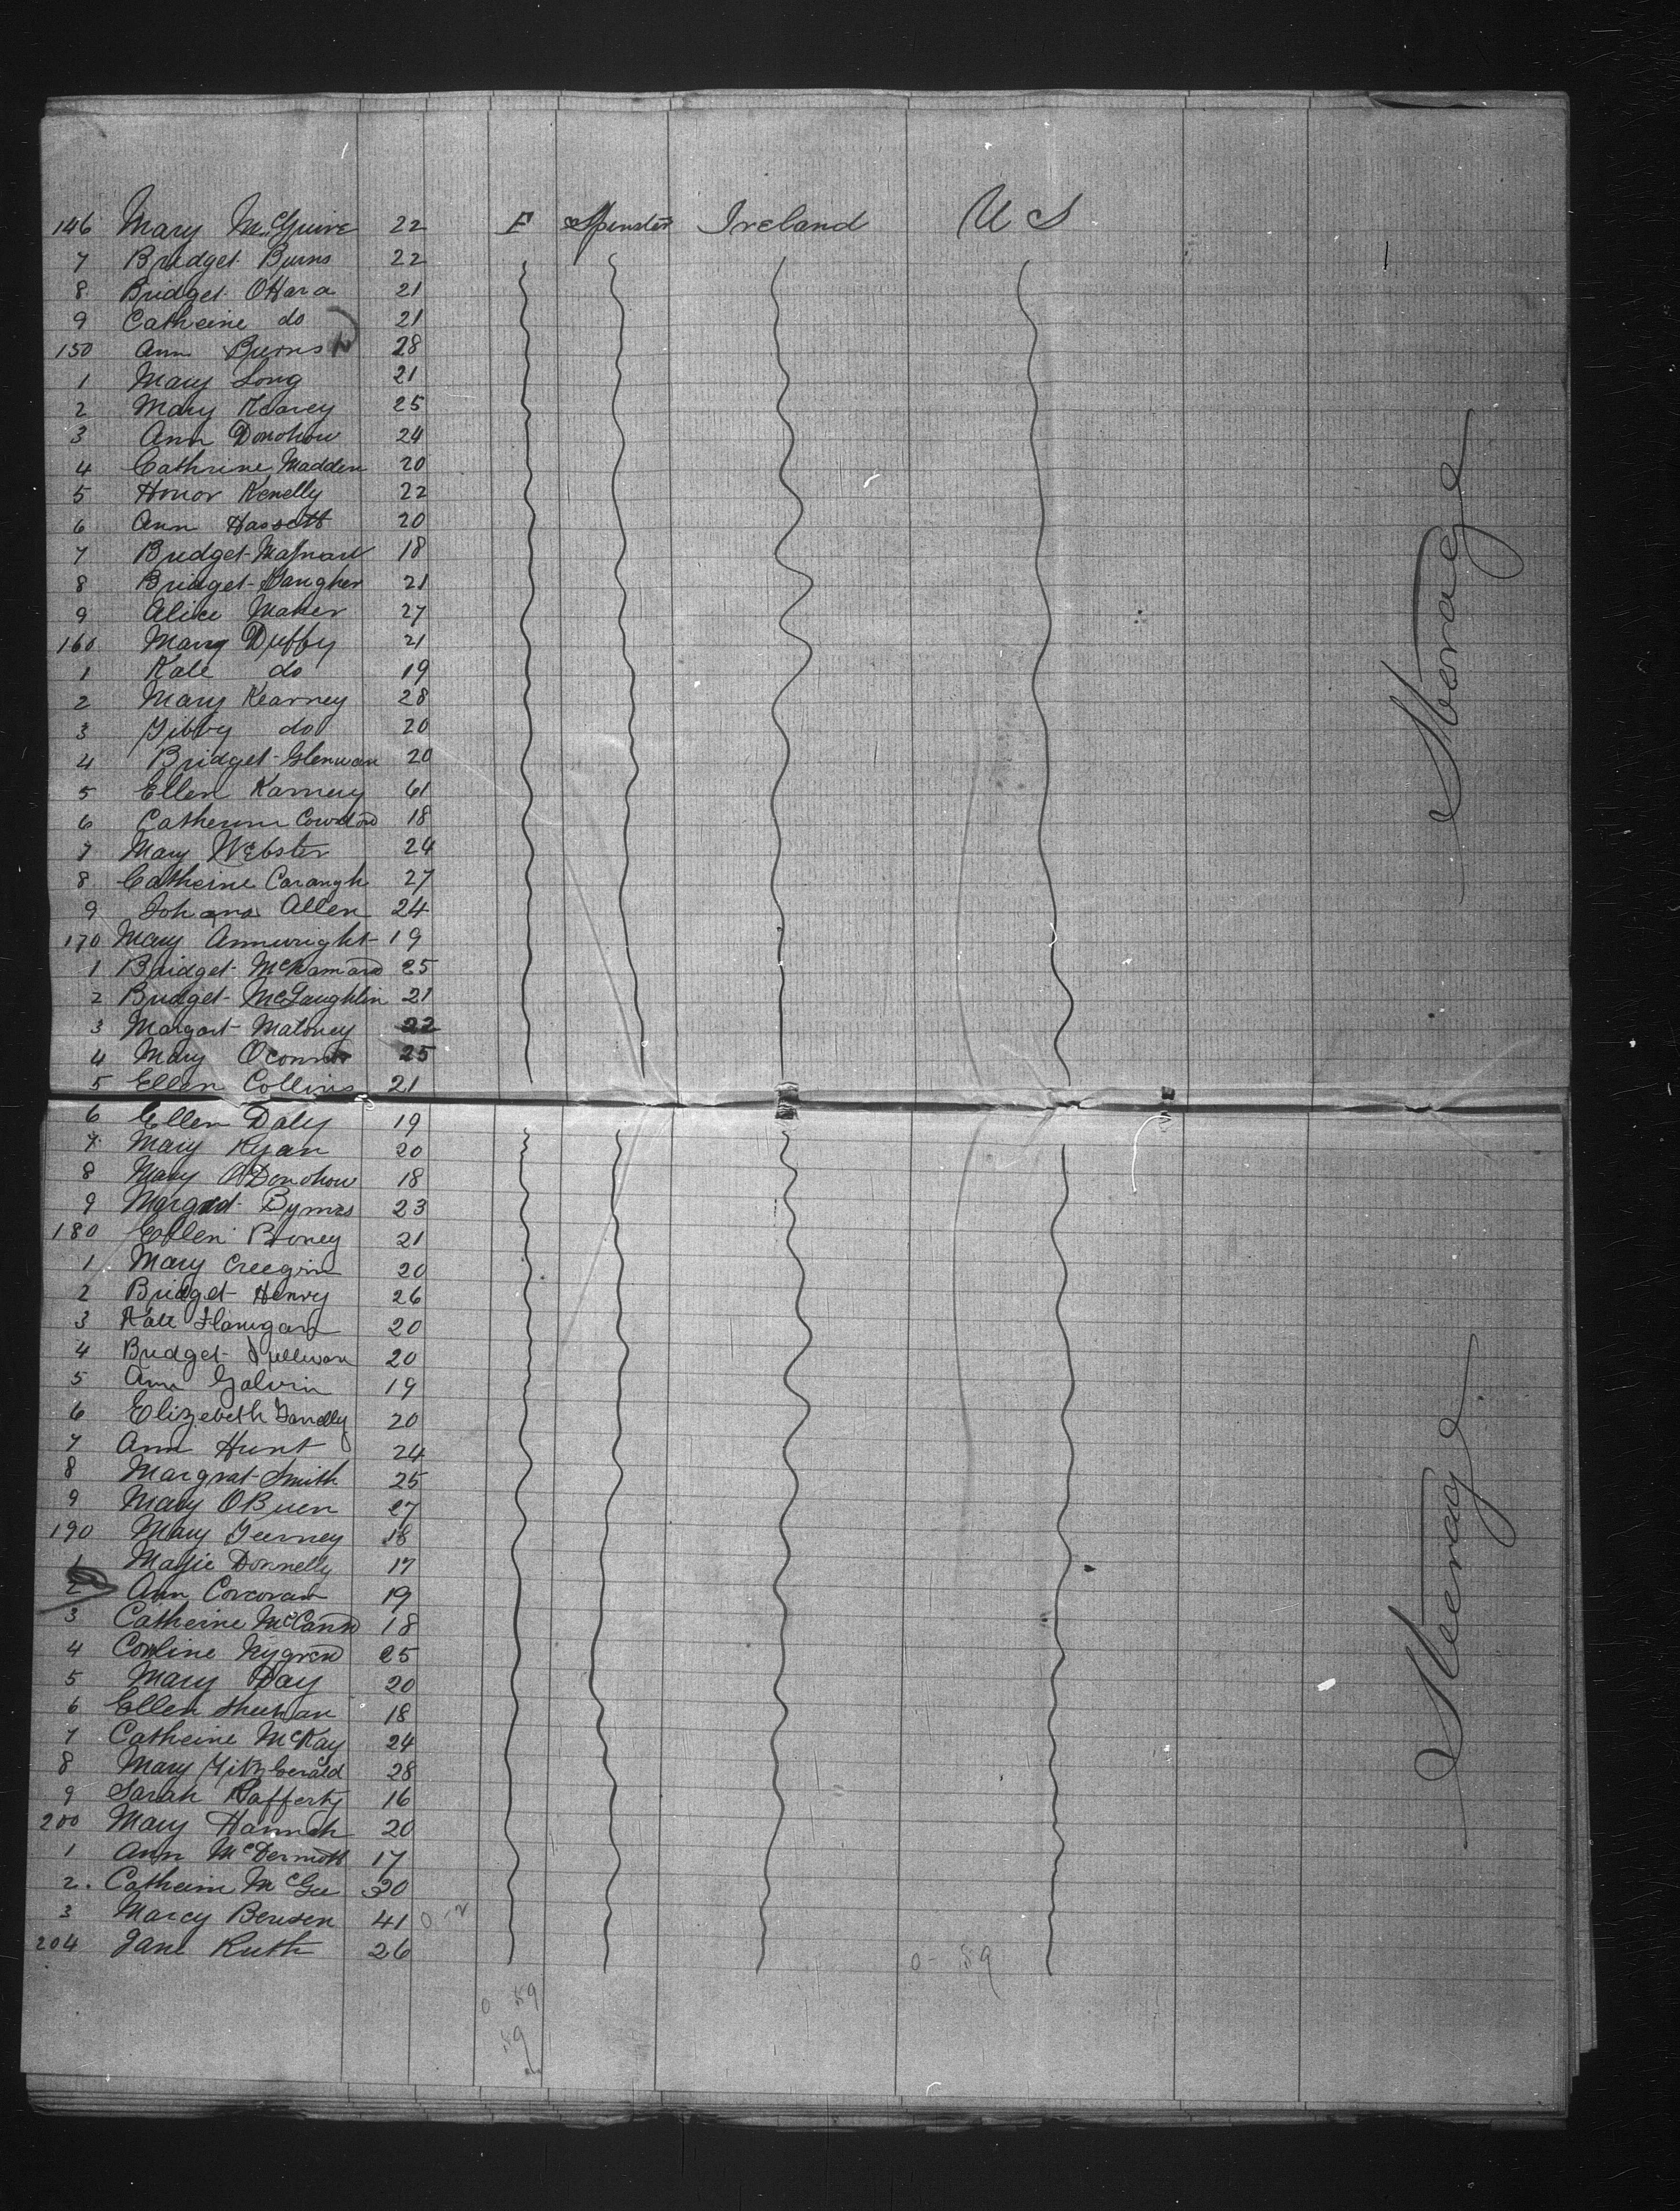 146 Mary McGuire 22 F Spinster Ireland U S
7 Bridget Burns 22
8 Bridget OHara 21
9 Catheine do 21
150 Ann Burns 28
1 Mary Long 21
2 Mary Kearey 25
3 Ann Donohow 24
4 Cathrine Madden 20
5 Honor Kenelly 22
6 Ann Hassett 20
7 Bridget 18
8 Bridget 21
9 Alice Maher 27
160 Mary Duffy 21
1 Kate do 19
2 Mary Kearney 28
3 do 20
4 Bridget 20
5 Ellen 61
6 18
7 Mary Webster 24
8 Catheine Cavangh 27
9 Johana Allen 24
170 Mary Annwright 19
1 Bridget 25
2 Bridget McLaughlin 21
3 Margart Maloney 22
4 Mary Oconnor 25
5 Ellen Collins 21
6 Ellen Daly 19
7 Mary Ryan 20
8 Mary ODonohow 18
9 Byrnes 23
180 Ellen 21
1 Mary Creegin 20
2 Bridget Henry 26
3 Kate Flanigan 20
4 Bridget Sullivan 20
5 Ann Galvin 19
6 Elizebeth 20
7 Ann Hunt 24
8 Margrat Smith 25
9 Mary OBrien 27
190 Mary 18
1 Donnelly 17
2 Ann Corcoran 19
3 Catheine McCann 18
4 25
5 Mary Day 20
6 Ellen Sheehan 18
7 Catheine McKay 24
8 Mary FitzGerald 28
9 Sarah Rafferty 16
200 Mary Hannah 20
1 Ann McDermott 17
2. McGee 20
3 41
204 Jane Ruth 26
Steerage
Steerage